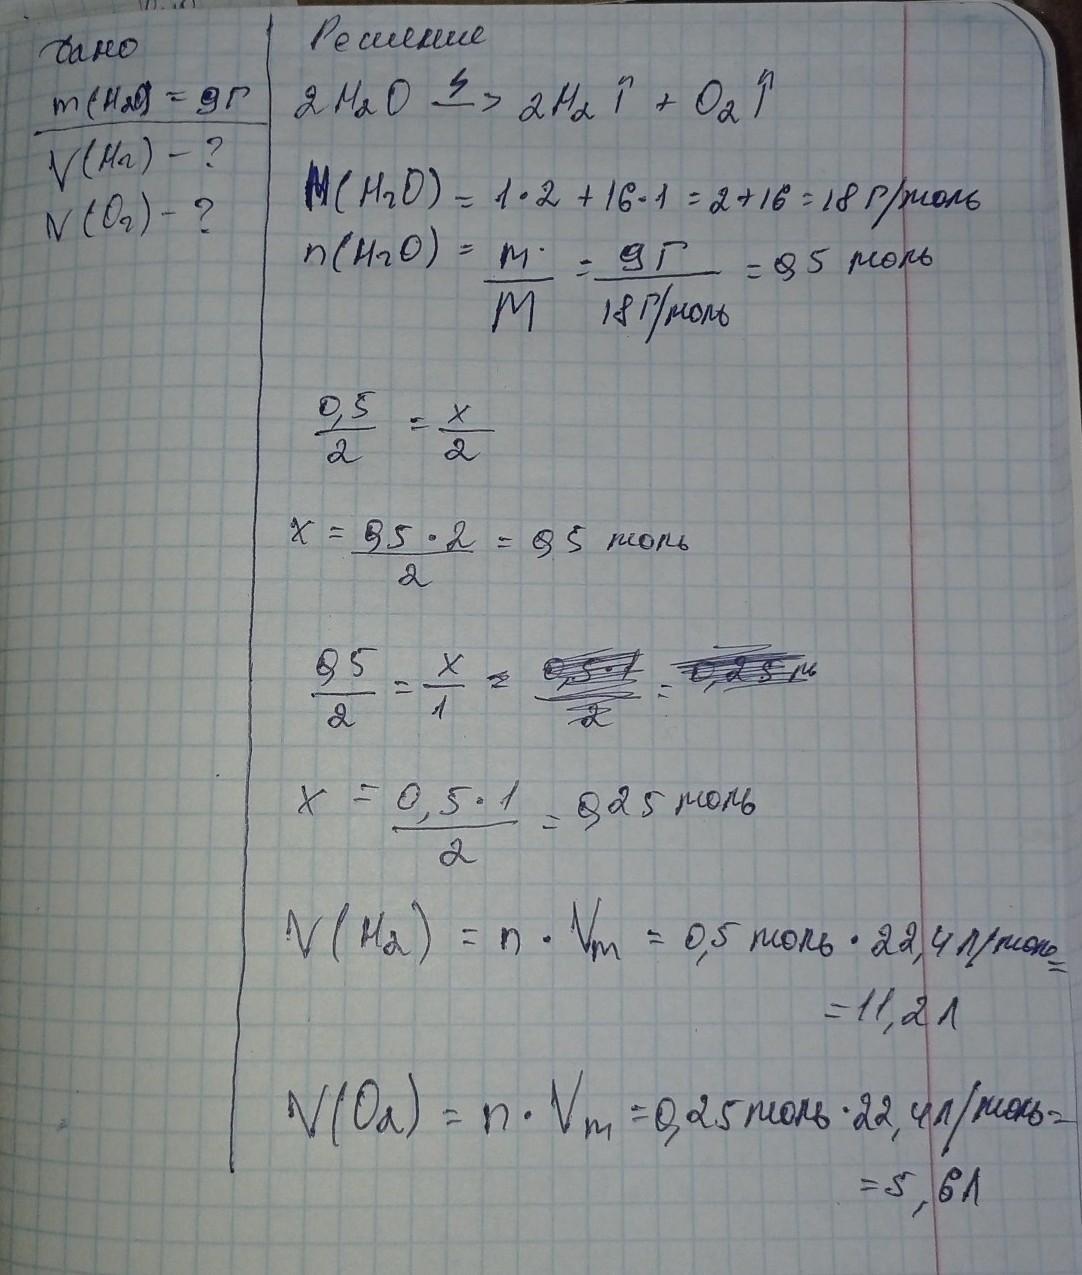 Дано
m(H2O) = 9г
V(H2) - ?
V(O2) - ?
Решение
2H2O → 2H2↑ + O2↑
M(H2O) = 1·2 + 16·1 = 2+16 = 18 г/моль
n(H2O) = m/M = 9г/18г/моль = 0,5 моль
0,5/2 = x/2
x = 0,5·2/2 = 0,5 моль
0,5/2 = x/1 =
x = 0,5·1/2 = 0,25 моль
V(H2) = n · Vm = 0,5 моль · 22,4 л/моль =
= 11,2 л
V(O2) = n · Vm = 0,25 моль · 22,4 л/моль =
= 5,6 л